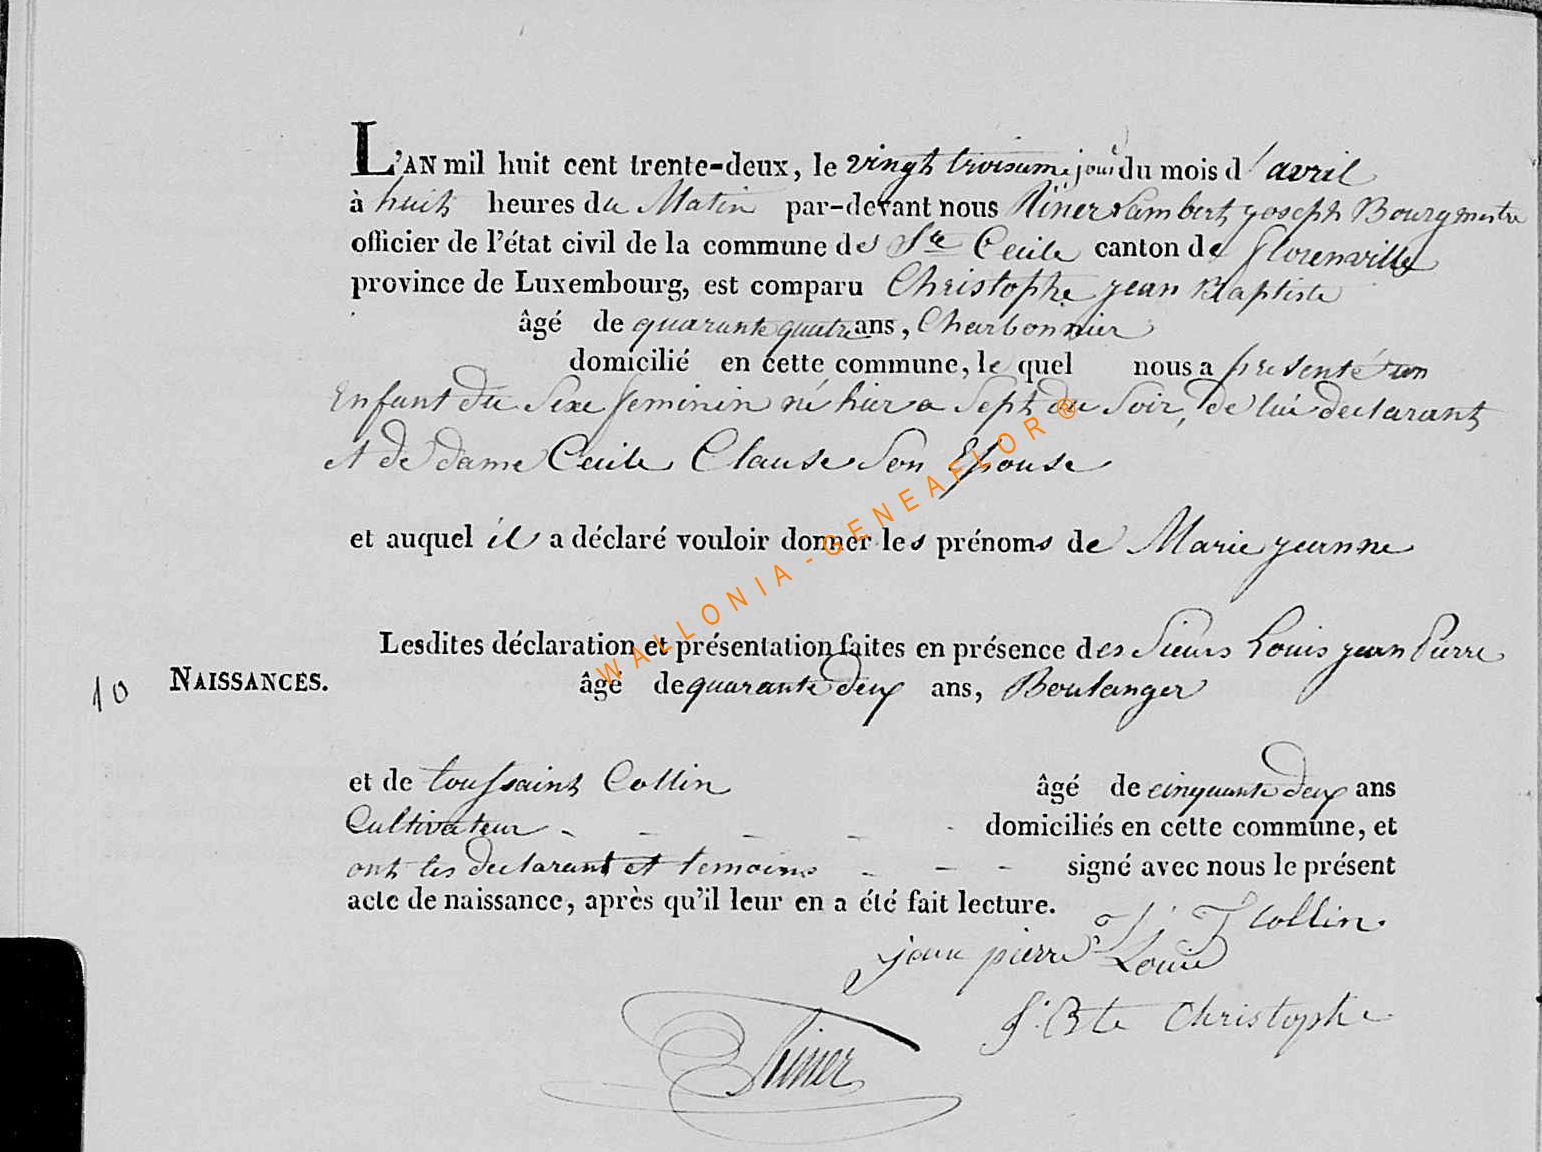 L'AN mil huit cent trente-deux, le vingt troisieme jour du mois d'avril
à huit heures du Matin par-devant nous Riner Lambert joseph Bourgmestre
officier de l'état civil de la commune de Ste Cecile canton de florenville
province de Luxembourg, est comparu Christophe jean Baptiste
âgé de quarante quatre ans, Charbonnier
domicilié en cette commune, le quel nous a presenté un
Enfant du Sexe feminin né hier a Sept du Soir, de lui declarant
et de dame Cecile Clause Son Epouse
et auquel il a déclaré vouloir donner les prénoms de Marie jeanne
Lesdites déclaration et présentation faites en présence des Sieurs Louis jean Pierre
10 NAISSANCES.
âgé de quarante deux ans, Boulanger
et de toussaint Collin âgé de cinquante deux ans
Cultivateur - - - - - domiciliés en cette commune, et
ont les declarant et temoins - - - signé avec nous le présent
acte de naissance, après qu'il leur en a été fait lecture.
T Collin.
jean pierre Louis
J. Bte Christophe
Riner
WALLONIA - GENEAFLOR ®